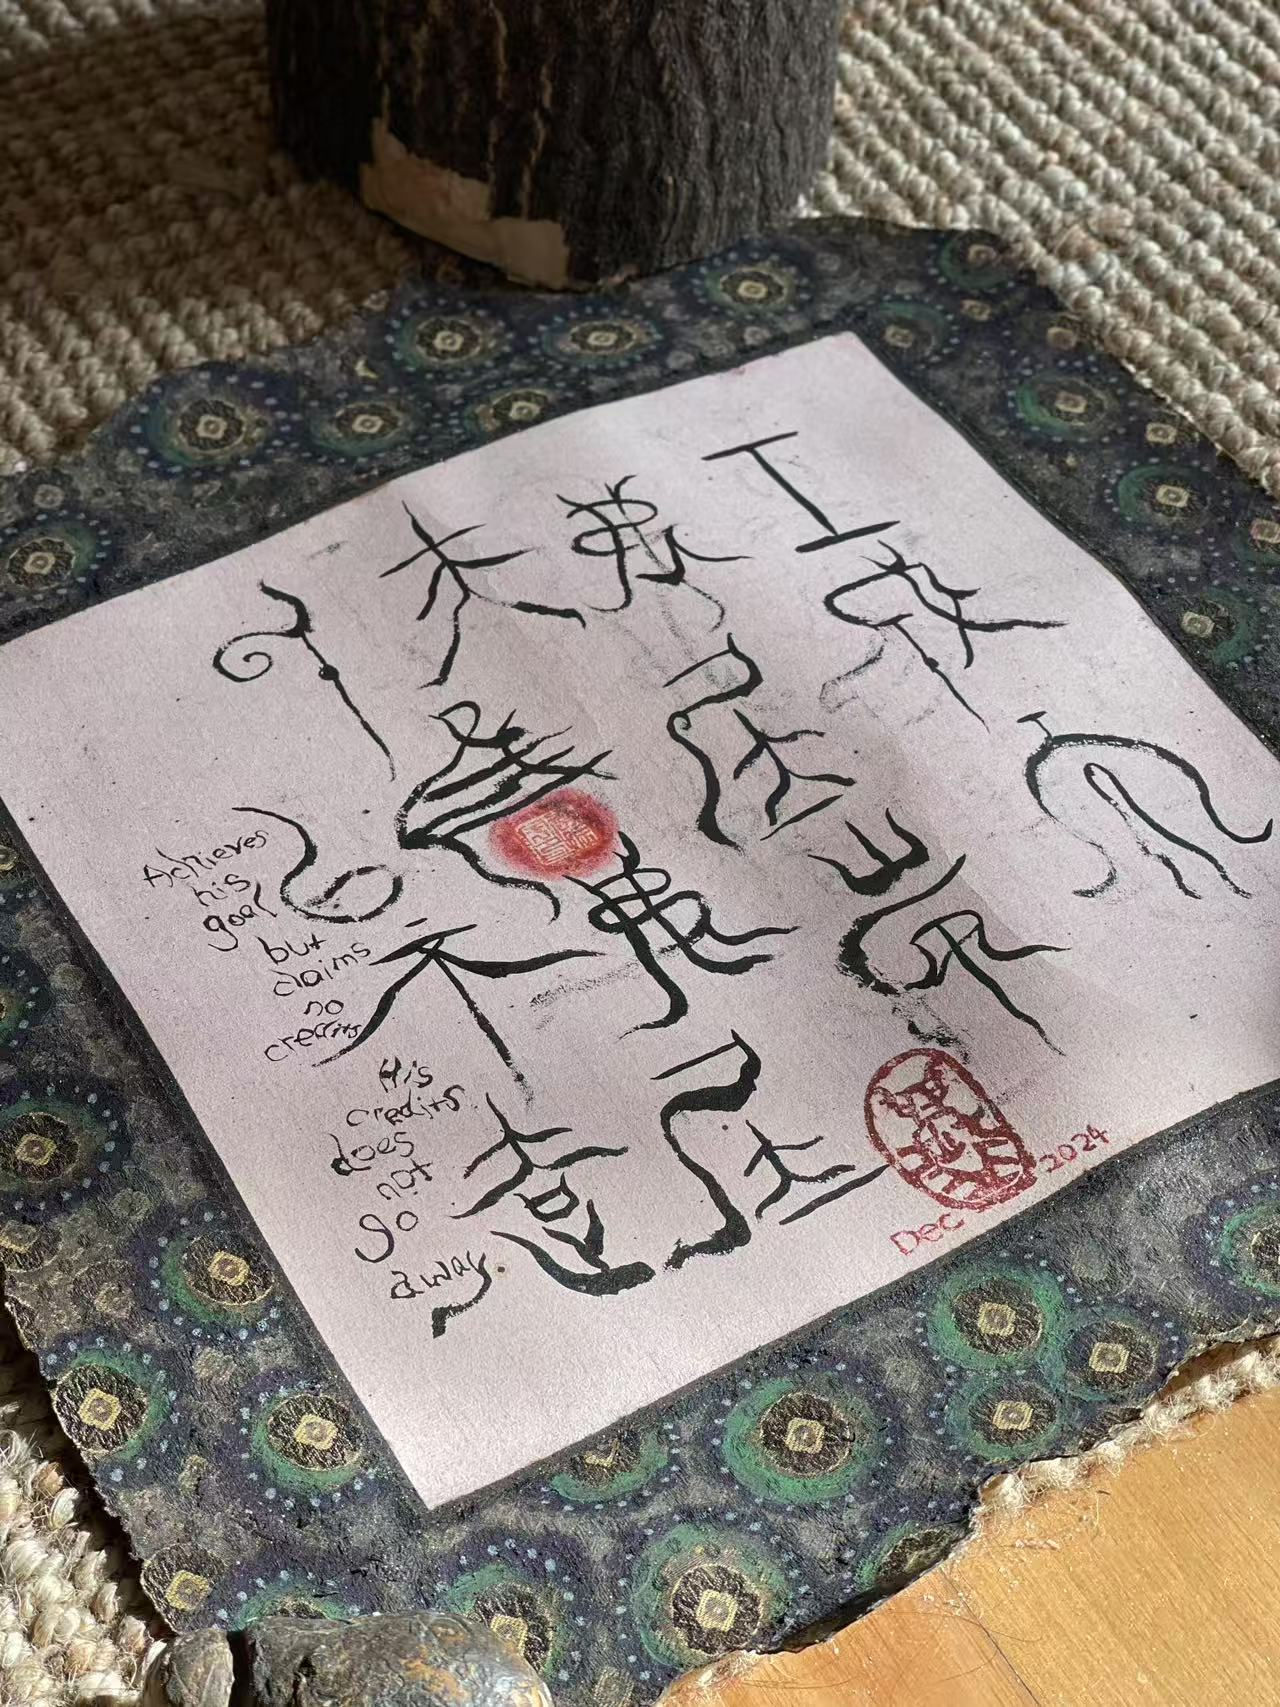 工成而
弗居
夫唯弗居
以不去
Achieves
his
goal
but
claims
no
credits
His
credits
does
not
go
away.
Dec 2024